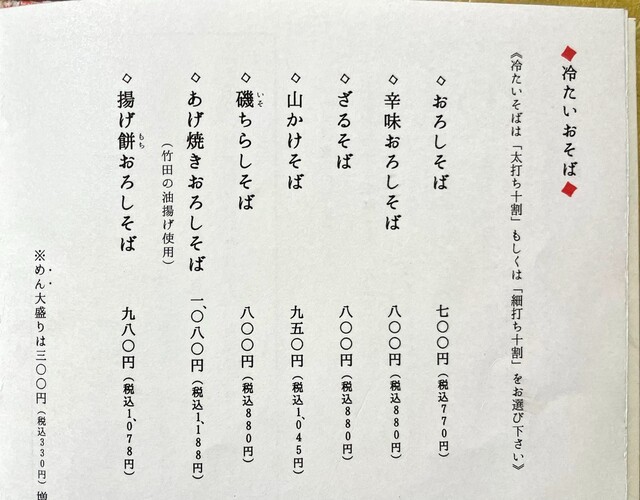 ◆冷たいおそば◆
《冷たいそばは「太打ち十割」もしくは「細打ち十割」をお選び下さい》
◇おろしそば 七〇〇円(税込770円)
◇辛味おろしそば 八〇〇円(税込880円)
◇ざるそば 八〇〇円(税込880円)
◇山かけそば 九五〇円(税込1,045円)
◇磯ちらしそば 八〇〇円(税込880円)
いそ
◇あげ焼きおろしそば 一、〇八〇円(税込1,188円)
(竹田の油揚げ使用)
◇揚げ餅おろしそば 九八〇円(税込1,078円)
もち
※めん大盛りは三〇〇円(税込330円)増